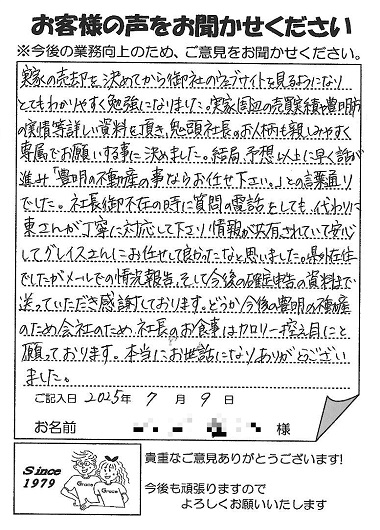 お客様の声をお聞かせください
※今後の業務向上のため、ご意見をお聞かせください。
実家の売却を決めてから御社のウェブサイトを見るようになり
とてもわかりやすく勉強になりました。実家周辺の売買実績や豊明市
の実情等詳しい資料を頂き、鬼頭社長のお人柄も親しみやすく
専属でお願いする事に決めました。結局、予想以上に早く話が
進み「豊明の不動産の事ならお任せ下さい。」との言葉通り
でした。社長御不在の時に質問の電話をしても、代わりに
東さんが丁寧に対応して下さり情報が共有されていて安心
してグレイスさんにお任せして良かったなと思いました。県外在住
でしたがメールでの情況報告、そして今後の確定申告の資料まで
送っていただき感謝しております。どうか今後の豊明の不動産
のため会社のため、社長のお食事はカロリー控え目にと
願っております。本当にお世話になりありがとうござい
ました。
ご記入日 2025年 7月 9日
お名前 様
Since
1979
Grace Grace
貴重なご意見ありがとうございます!
今後も頑張りますので
よろしくお願いいたします